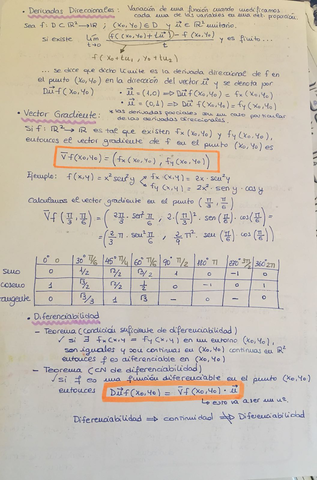 • Derivadas Direccionales: Variación de una función cuando modificamos
cada una de las variables en una det. proporción
Sea f: D ⊂ ℝ² → ℝ ; (x₀,y₀) ∈ D y u⃗ ∈ ℝ² unitario.
si existe lim t→0 f((x₀,y₀) + t u⃗) - f(x₀,y₀) / t y es finito...
f(x₀+tu₁, y₀+tu₂)
... se dice que dicho límite es la derivada direccional de f en
el punto (x₀,y₀) en la dirección del vector u⃗ y se denota por
Du⃗ f(x₀,y₀) • u⃗ = (1,0) ⇒ Du⃗ f(x₀,y₀) = fx(x₀,y₀)
• u⃗ = (0,1) ⇒ Du⃗ f(x₀,y₀) = fy(x₀,y₀)
• Vector Gradiente: * las derivadas parciales son un caso particular
de las derivadas direccionales.
Si f: ℝ² → ℝ es tal que existen fx(x₀,y₀) y fy(x₀,y₀),
entonces el vector gradiente de f en el punto (x₀,y₀) es
∇f(x₀,y₀) = (fx(x₀,y₀), fy(x₀,y₀))
Ejemplo: f(x,y) = x² sen² y fx(x,y) = 2x · sen² y
fy(x,y) = 2x² · sen y · cos y
Calculamos el vector gradiente en el punto (π/3, π/6)
∇f(π/3, π/6) = (2π/3 · sen² π/6, 2(π/3)² · sen(π/6) · cos(π/6)) =
= (2/3 π · sen² π/6, 2/9 π² · sen(π/6) · cos(π/6))
0° 0 30° π/6 45° π/4 60° π/3 90° π/2 180° π 270° 3π/2 360° 2π
seno 0 1/2 √2/2 √3/2 1 0 -1 0
coseno 1 √3/2 √2/2 1/2 0 -1 0 1
tangente 0 √3/3 1 √3 - 0 - 0
• Diferenciabilidad
- Teorema (condición suficiente de diferenciabilidad)
si ∃ fx(x,y) = fy(x,y) en un entorno (x₀,y₀),
son iguales y son continuas en (x₀,y₀) continuas en ℝ²
entonces f es diferenciable en (x₀,y₀)
- Teorema (CN de diferenciabilidad)
si f es una función diferenciable en el punto (x₀,y₀)
entonces Du⃗ f(x₀,y₀) = ∇f(x₀,y₀) · u⃗
esto va a ser un nº
Diferenciabilidad ⇒ continuidad ⇏ Diferenciabilidad